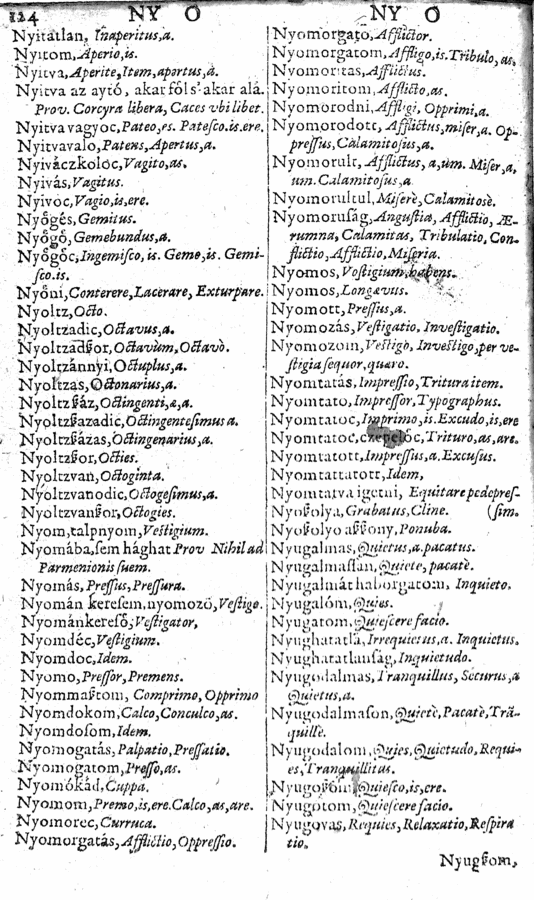 124 NY O
Nyitatlan, Inaperitus,a.
Nyitom, Aperio,is.
Nyitva, Aperite, Item, apertus,a.
Nyitva az aytó, akar fól s' akar alá.
Prov. Corcyra libera, Caces vbi libet.
Nyitva vagyoc, Pateo,es. Patesco.is.ere.
Nyitvavalo, Patens, Apertus,a.
Nyiváczkoloc, Vagito,as.
Nyivás, Vagitus.
Nyivoc, Vagio,is,ere.
Nyőgés, Gemitus.
Nyőgő, Gemebundus,a.
Nyőgőc, Ingemisco, is. Gemo,is. Gemi-
sco.is.
Nyőni, Conterere, Lacerare, Exturpare.
Nyoltz, Octo.
Nyoltzadic, Octavus,a.
Nyoltzadʃzor, Octavùm, Octavò.
Nyoltzánnyi, Octuplus,a.
Nyoltzas, Octonarius,a.
Nyoltzſzáz, Octingenti,æ,a.
Nyoltzſzazadic, Octingentesimus a.
Nyoltzſzázas, Octingenarius,a.
Nyoltzſzor, Octies.
Nyoltzvan, Octoginta.
Nyoltzvanodic, Octogesimus,a.
Nyoltzvanſzor, Octogies.
Nyom, talpnyom, Vestigium.
Nyomába, sem hághat Prov Nihil ad
Parmenionis suem.
Nyomás, Pressus, Pressura.
Nyomán keresem, nyomozō, Vestigo.
Nyománkeresō, Vestigator,
Nyomdéc, Vestigium.
Nyomdoc, Idem.
Nyomo, Pressor, Premens.
Nyommaſztom, Comprimo, Opprimo
Nyomdokom, Calco, Conculco,as.
Nyomdosom, Idem.
Nyomogatás, Palpatio, Pressatio.
Nyomogatom, Presso,as.
Nyomókád, Cuppa.
Nyomom, Premo,is,ere. Calco,as,are.
Nyomorec, Curruca.
Nyomorgatás, Afflictio, Oppressio.
NY O
Nyomorgató, Afflictor.
Nyomorgatom, Affligo,is. Tribulo,as.
Nyomoritas, Afflictus.
Nyomoritom, Afflicto,as.
Nyomorodni, Affligi, Opprimi,a.
Nyomorodott, Afflictus, miser,a. Op-
pressus, Calamitosus,a.
Nyomorult, Afflictus, a,um. Miser,a,
um. Calamitosus,a
Nyomorultul, Miserè, Calamitosè.
Nyomoruság, Angustia, Afflictio, Æ-
rumna, Calamitas, Tribulatio, Con-
flictio, Afflictio, Miseria.
Nyomos, Vostigium habens.
Nyomos, Longævus.
Nyomott, Pressus,a.
Nyomozás, Vestigatio, Investigatio.
Nyomozom, Vestigo, Investigo, per ve-
stigia sequor, quæro.
Nyomtatás, Impressio, Tritura item.
Nyomtato, Impressor, Typographus.
Nyomtatoc, Imprimo,is. Excudo,is,ere
Nyomtatoc, czepelōc, Trituro,as,are.
Nyomtatott, Impressus,a. Excusus.
Nyomtattatott, Idem,
Nyomtatva igetni, Equitare pedepres-
Nyoſzolya, Grabatus, Cline. (sim.
Nyoſzolyo aſzſzony, Ponuba.
Nyugalmas, Quietus,a. pacatus.
Nyugalmaslan, Quiete, pacatè.
Nyugalmát haborgatom, Inquieto.
Nyugalóm, Quies.
Nyugatom, Quiescere facio.
Nyughatatla, Irrequietus,a. Inquietus.
Nyughatatlanság, Inquietudo.
Nyugodalmas, Tranquillus, Securus,a
Quietus,a.
Nyugodalmason, Quietè, Pacatè, Trā-
quillè.
Nyugodalom, Quies, Quietudo, Requi-
es, Tranquillitas.
Quiesco,is,ere.
Nyugotom, Quiescere facio.
Nyugovas, Requies, Relaxatio, Respira
tio.
Nyugſzom,